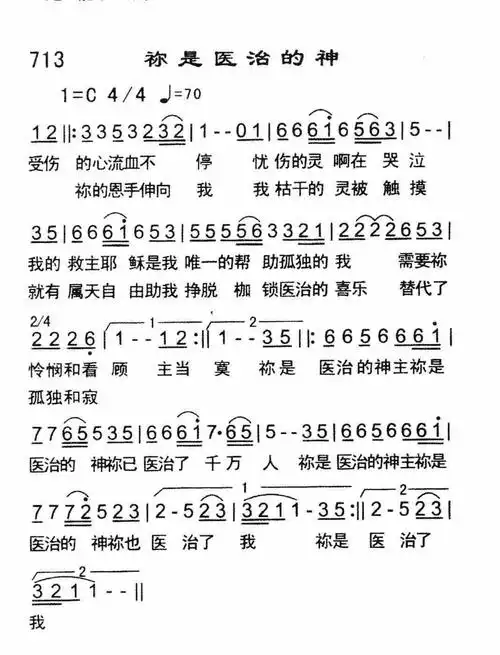 713 祢是医治的神
1=C 4/4 ♩=70
12‖:3353232|1--01|6661̇6563|5--|
受伤 的心流血不 停 忧 伤的灵 啊在 哭 泣
祢的恩手伸向 我 我 枯干的 灵被 触 摸
35|6661̇653|555563321|2222653|
我的 救主耶 稣是我 唯一的帮 助孤独的 我 需要祢
就有 属天自 由助我 挣脱 枷 锁医治的 喜乐 替代了
2/4 1 2
2226̣|1--12:‖1--35|6665661̇|
怜悯和看 顾 主当 寞 祢是 医治的神主祢是
孤独和寂
7765535|6665661̇7·65|5--35|6665661̇|
医治的 神祢已医治了 千万 人 祢是医治的神主祢是
1 2
7772̇523|2-523|3211-35:‖2-523|
医治的 神祢也 医 治了 我 祢是 医 治了
2
3211--‖
我